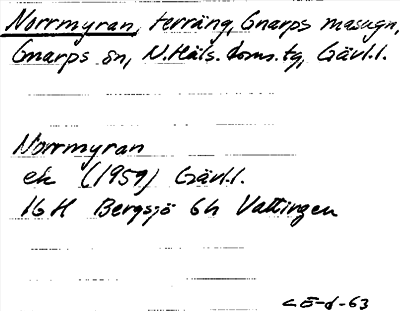 Norrmyran, terräng, Gnarps masugn,
Gnarps sn, N.Häls. doms.tg, Gävl.l.
Norrmyran
ek (1959) Gävl.l.
16H Bergsjö 6h Vattingen
CE-d-63